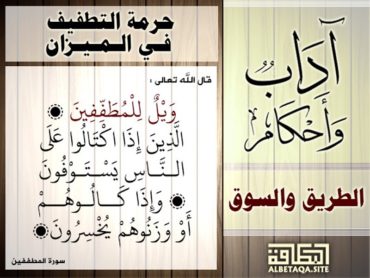 آدَابٌ
وَأَحْكَام
الطريق والسوق
حرمة التطفيف
في الـمـيـزان
قال الله تعالى :
وَيْلٌ لِّلْمُطَفِّفِينَ
الَّذِينَ إِذَا اكْتَالُوا عَلَى
النَّاسِ يَسْتَوْفُونَ
وَإِذَا كَالُوهُمْ
أَوْ وَزَنُوهُمْ يُخْسِرُونَ
سورة المطففين
البطاقة
ALBETAQA.SITE